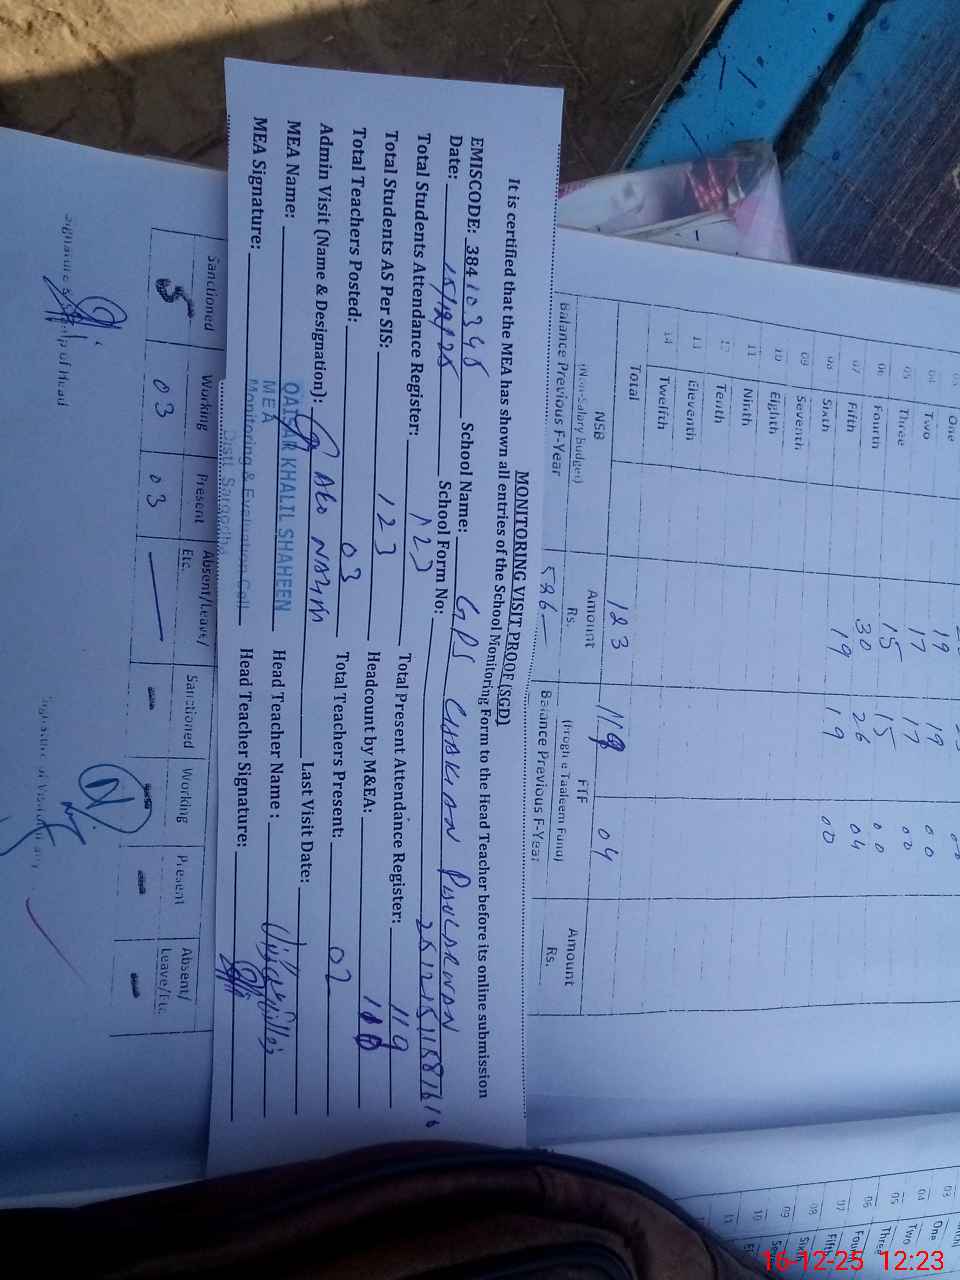 MONITORING VISIT PROOF (SGD)
It is certified that the MEA has shown all entries of the School Monitoring Form to the Head Teacher before its online submission
EMISCODE: 38410348 School Name: GPS CHAKIAN
Date: 15/12/25 School Form No:
Total Students Attendance Register: 123 Total Present Attendance Register: 119
Total Students AS Per SIS: 123 Headcount by M&EA:
Total Teachers Posted: 03 Total Teachers Present: 02
Admin Visit (Name & Designation): AEO Last Visit Date:
MEA Name: QAISAR KHALIL SHAHEEN Head Teacher Name :
MEA
MEA Signature: Monitoring & Evaluation Cell Head Teacher Signature:
Distt. Sargodha
One 19 19
Two 17 17 00
Three 15 15 00
06 Fourth 30 26 04
07 Fifth 19 19 00
08 Sixth
09 Seventh
10 Eighth
11 Ninth
12 Tenth
13 Eleventh
14 Twelfth
Total 123 119 04
NSB Amount FTF Amount
(Non-Salary Budget) Rs. (Frogh e Taaleem Fund) Rs.
Balance Previous F-Year 586 Balance Previous F-Year
Sanctioned Working Present Absent/Leave/ Sanctioned Working Present Absent/
Etc. Leave/Etc.
03 03
Signature & Stamp of Head
03
04 One
05 Two
06 Three
07
08
09
10
11
16-12-25 12:23